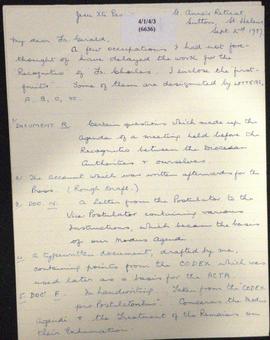 Jesu Xti Pas
4/1/4/3
(6636)
St. Anne's Retreat,
Sutton, St Helens
Sept 2nd 19
My dear Fr. Gerald,
A few occupations I had not fore-
thought of have delayed the work for the
Recognitio of Fr. Charles. I enclose the first-
fruits. Some of them are designated by LETTERS,
A, B, C, etc.
DOCUMENT Certain questions which made up the
Agenda of a meeting held before the
Recognitio between the Diocesan
Authorities & ourselves.
The Account which was written afterwards for the
Press. (Rough Draft.)
DOC. A letter from the Postulator to the
Vice Postulator containing various
Instructions, which became the basis
of our Modus Agendi.
A typewritten document, drafted by me,
containing points from the CODEX which was
used later as a basis for the ACTA.
DOC F. In handwriting. Taken from the "CODEX
pro Postulatoribus". Concerns the Modus
Agendi & the Treatment of the Remains on
their Exhumation.